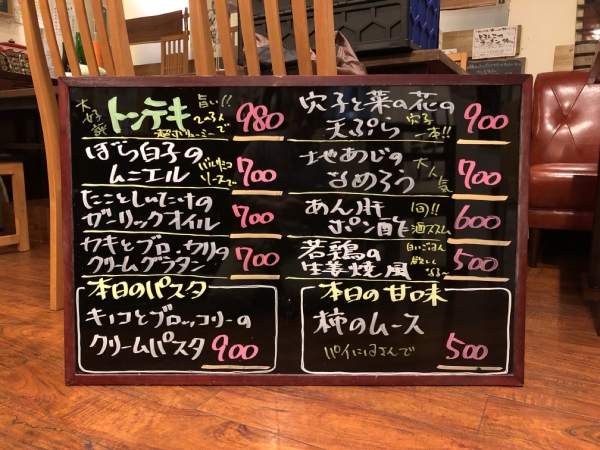 大好評
トンテキ
旨い!!
2〜3人で
980
ぼら白子の
ムニエル
バルサミコ
ソースで
700
たことしいたけの
ガーリックオイル
700
カキとブロッコリの
クリームグラタン
700
本日のパスタ
キノコとブロッコリーの
クリームパスタ 900
穴子と菜の花の
天ぷら
穴子
一本!!
900
地あじの
なめろう
大人気
700
あん肝
ポン酢
旬!!
酒ススム
600
若鶏の
生姜焼風
白いごはん
欲しく
なる〜
500
本日の甘味
柿のムース
パイにはさんで
500